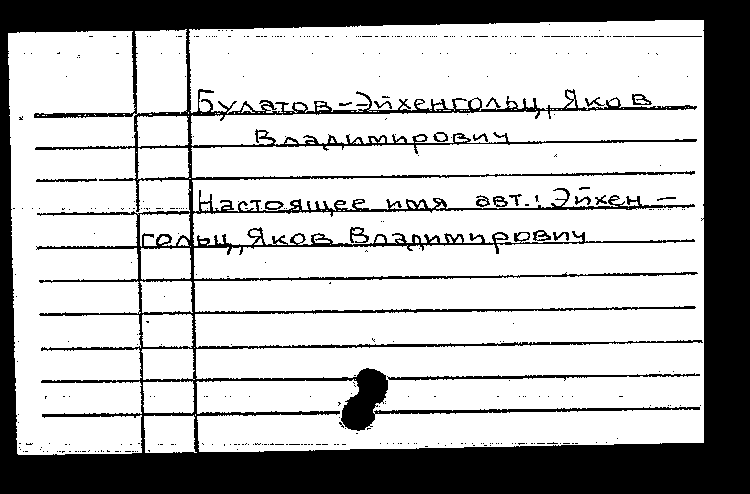 Булатов-Эйхенгольц, Яков
Владимирович
Настоящее имя авт.: Эйхен-
гольц, Яков Владимирович